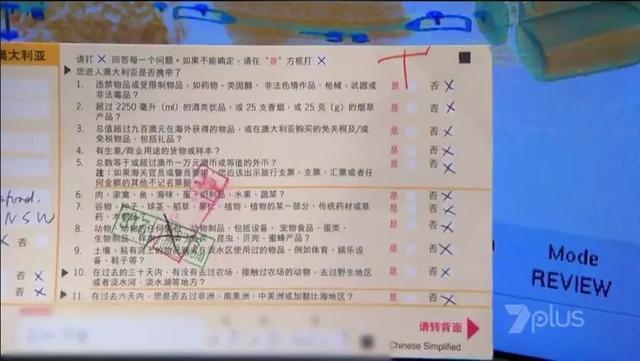 澳大利亚
请打 X 回答每一个问题。如果不能确定，请在“是”方框打 X
▶您进入澳大利亚是否携带了
1. 违禁物品或受限制物品，如药物、类固醇、非法色情作品、枪械、武器或非法毒品？ 是 否 X
2. 超过 2250 毫升（ml）的酒类饮品，或 25 支香烟，或 25 克（g）的烟草产品？ 是 否 X
3. 总值超过九百澳元在海外获得的物品，或在澳大利亚购买的免关税及/或免税物品，包括礼品？ 是 否 X
4. 有生意/商业用途的货物或样本？ 是 否 X
5. 总数等于或超过澳币一万元澳币或等值的外币？ 是 否 X
注：如果海关官员或警员要求，您应该出示旅行支票、支票、汇票或者任何金额的其他不记名票据
6. 肉、家禽、鱼、海味、蛋、奶制品、水果、蔬菜？ 是 否 X
7. 谷物、种子、球茎、稻草、果仁、植物、植物的某一部分，传统药材或草药、 是 否 X
8. 动物、动物的任何部位、动物制品，包括设备、宠物食品、蛋类、生物制品、 昆虫、贝壳、蜜蜂产品？ 是 否 X
9. 土壤，粘有泥土的物品或者在淡水区使用过的物品，例如体育，娱乐设备、鞋子等？ 是 否 X
▶10. 在过去的三十天内，有没有去过农场，接触过农场的动物、去过野生地区或者淡水河、淡水湖等地方？ 是 否 X
▶11. 在过去六天内，您是否去过非洲、南美洲、中美洲或加勒比海地区？ 是 否 X
请转背面
Chinese Simplified
NSW
否 X
否 X
否 X
Mode
REVIEW
7plus